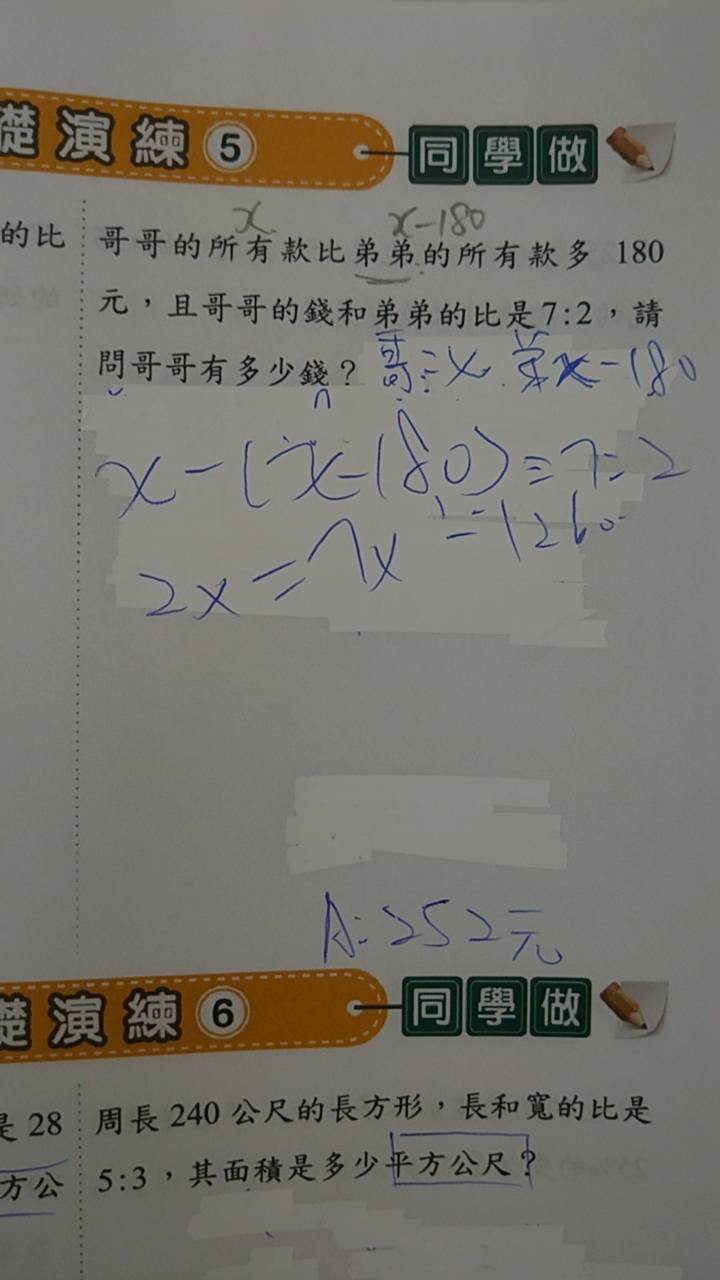 礎演練5 同學做
x x-180
的比 哥哥的所有款比弟弟的所有款多 180
元，且哥哥的錢和弟弟的比是7:2，請
問哥哥有多少錢？ 哥=x 弟x-180
x-(x-180)=7=2
2x=7x-1260
A:252元
礎演練6 同學做
是28 周長240公尺的長方形，長和寬的比是
方公 5:3，其面積是多少平方公尺？